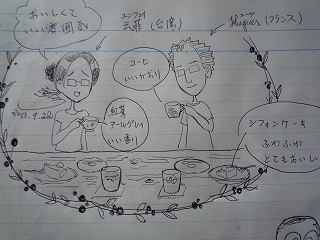 おいしくて
いい雰囲気
ユンフェイ
云菲（台湾）
ユーグ
Hugues（フランス）
2013.9.22
コーヒー
いいかおり
紅茶
アールグレイ
いい香り
シフォンケーキ
ふわふわ
とてもおいしい